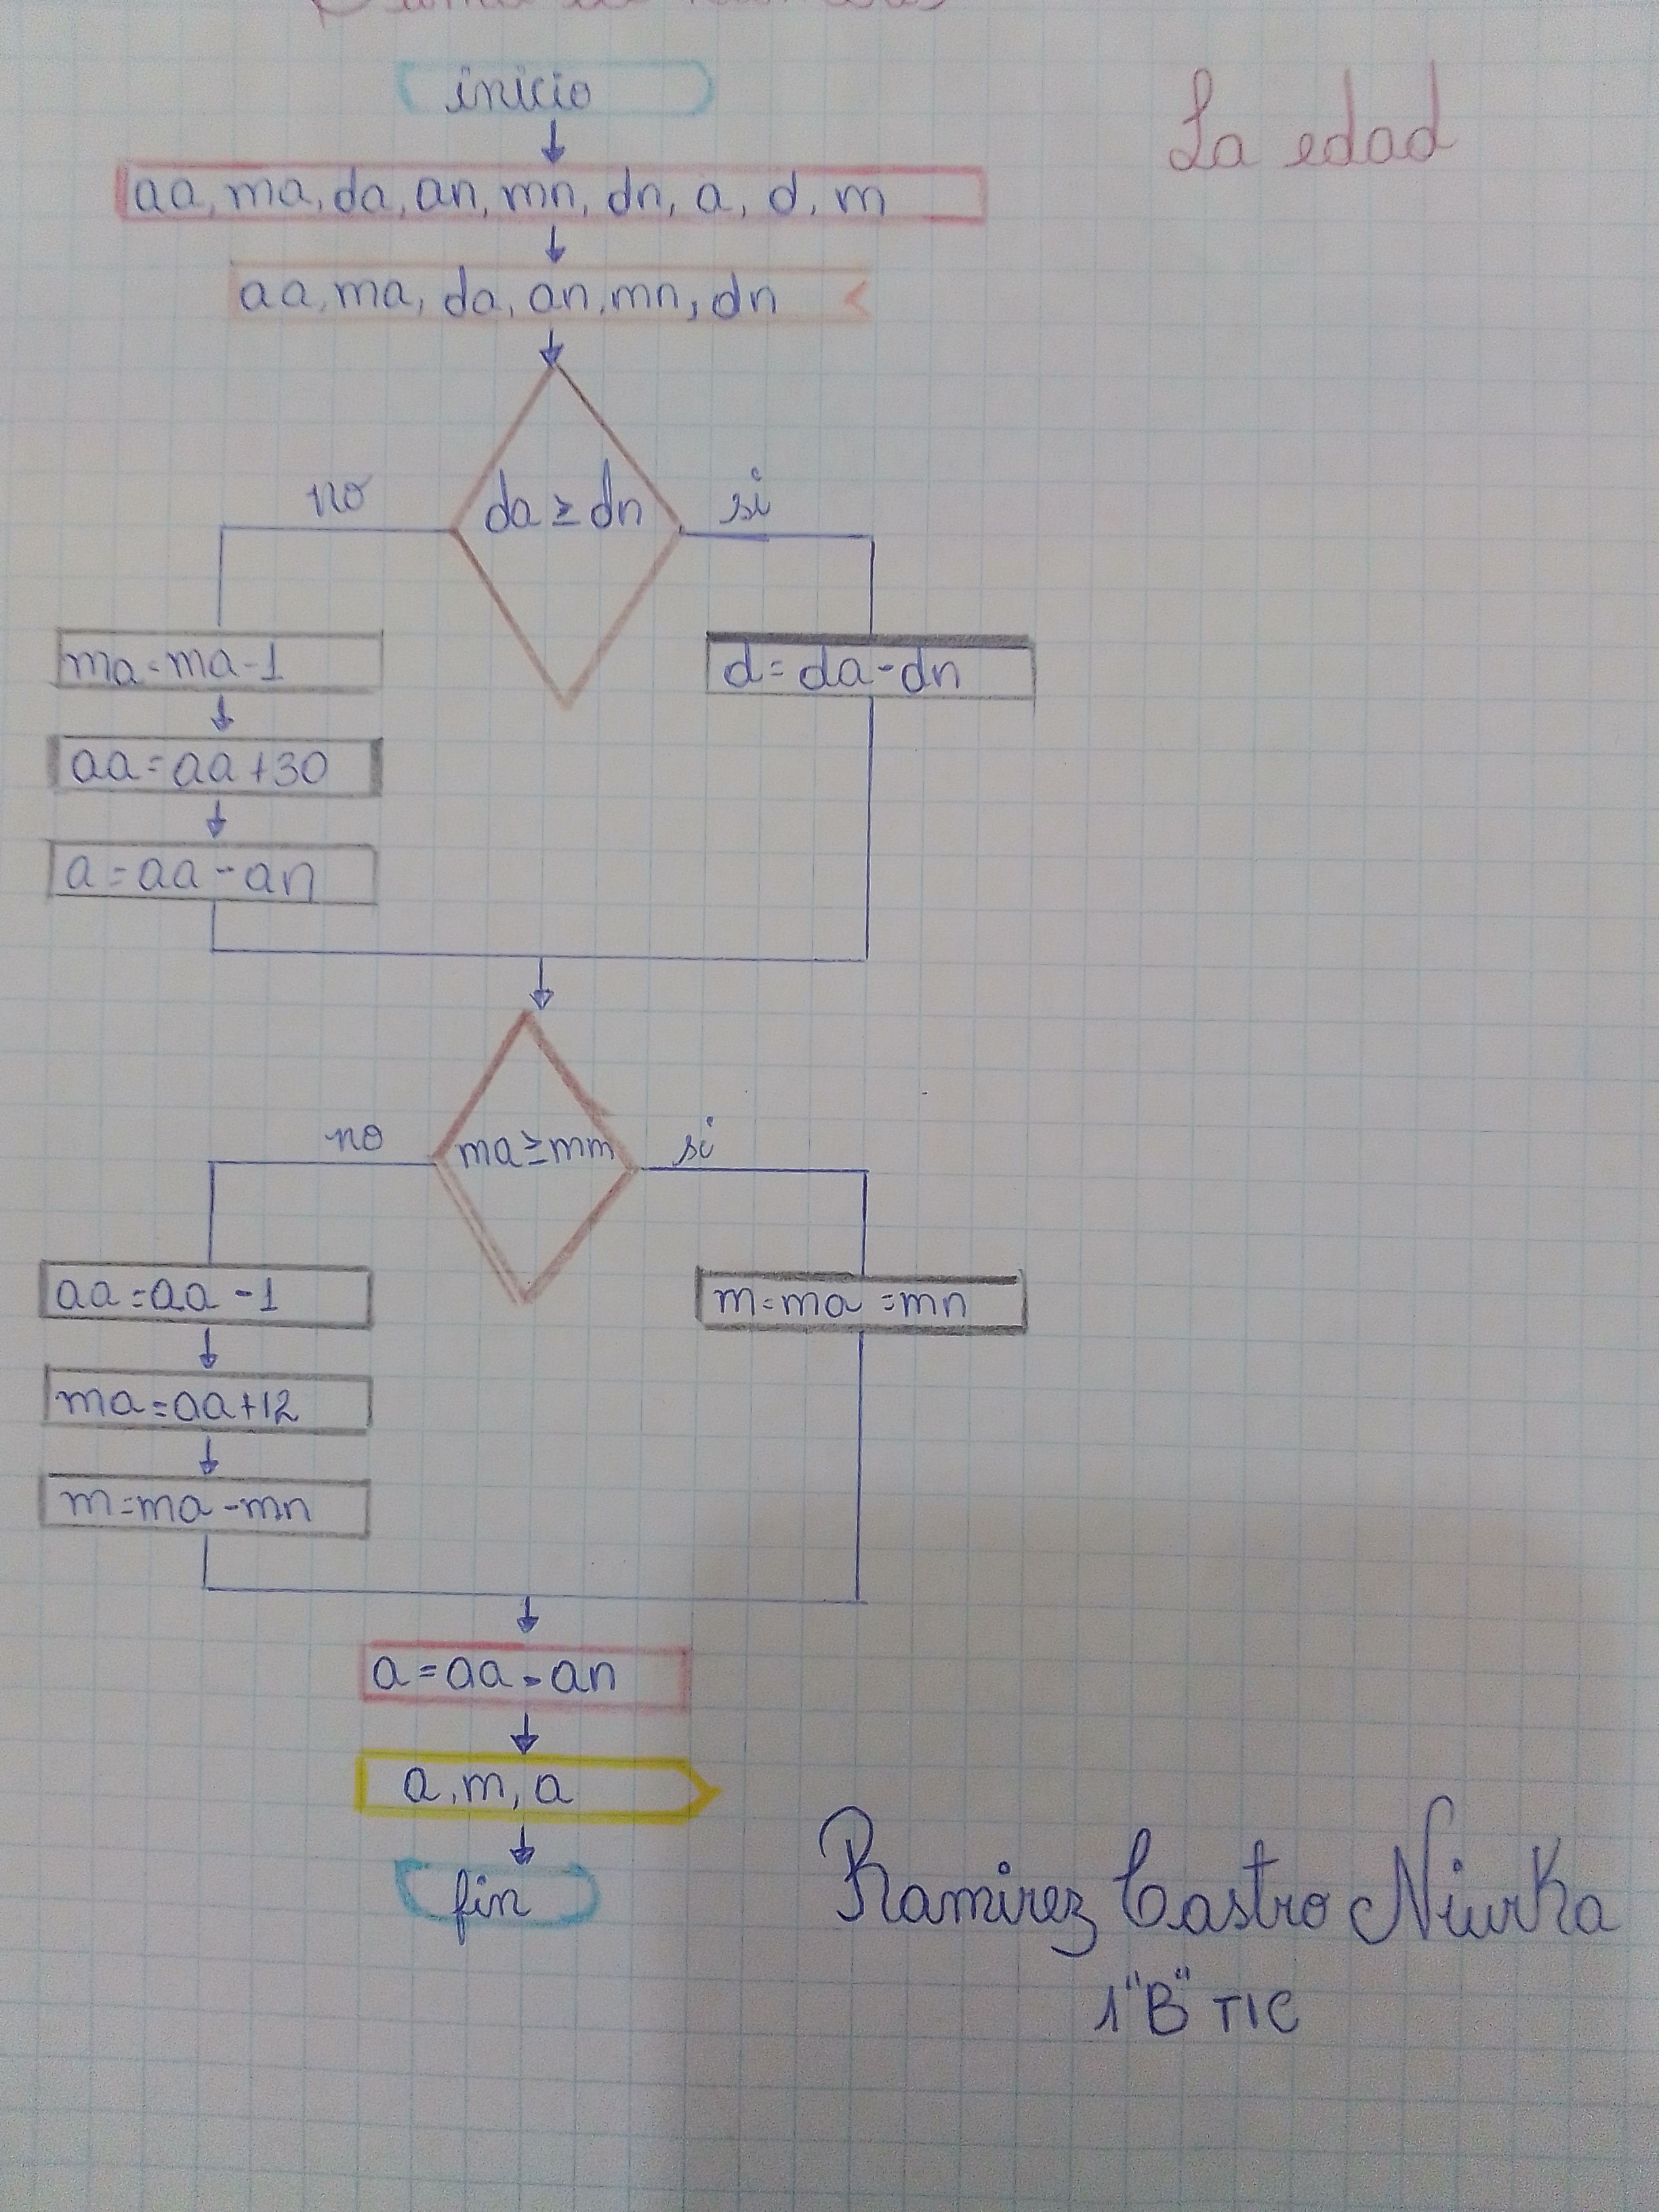 inicio
La edad
aa, ma, da, an, mn, dn, a, d, m
aa, ma, da, an, mn, dn
da ≥ dn
no
si
ma = ma - 1
d = da - dn
aa = aa + 30
a = aa - an
ma ≥ mm
no
si
aa = aa - 1
m = ma = mn
ma = aa + 12
m = ma - mn
a = aa - an
a, m, a
fin
Ramirez Castro Niurka
1"B" TIC